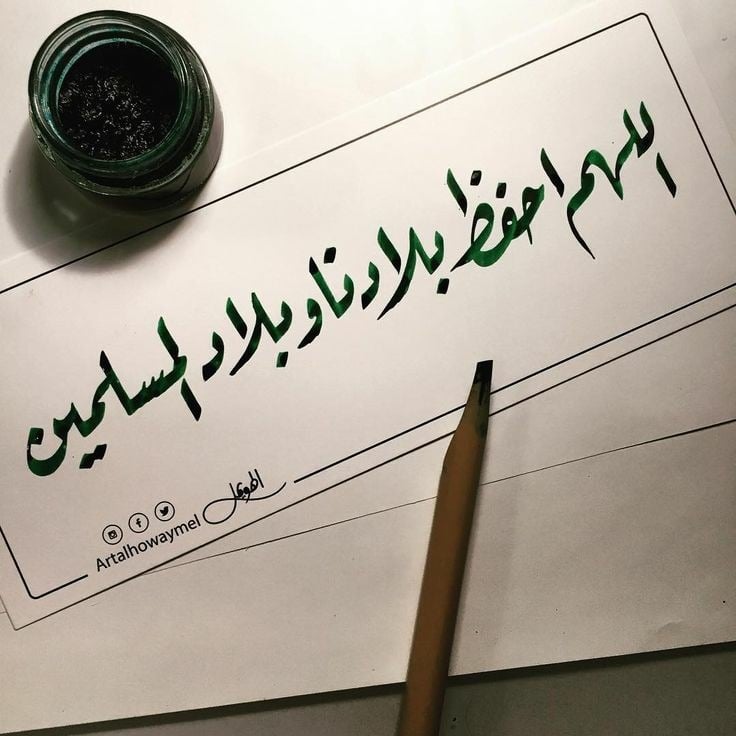 اللهم احفظ بلادنا و بلاد المسلمين
الهويمل
Artalhowaymel